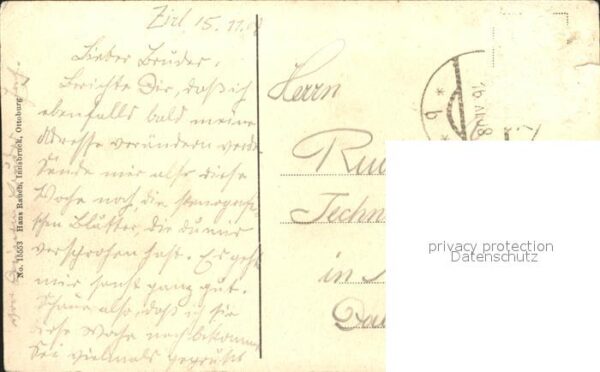 Zirl 15.11.08
Lieber Bruder.
Berichte Dir, daß ich
ebenfalls bald meine
Adresse verändern werde
Sende mir also diese
Woche noch die stenografi-
schen Blätter, die du mir
versprochen hast. Es geht
mir sonst ganz gut.
Schaue also, daß ich sie
diese Woche noch bekomme
Sei vielmals gegrüßt
No. 15553 Hans Rauch, Innsbruck, Ottoburg
Herrn
Techn
in
privacy protection
Datenschutz